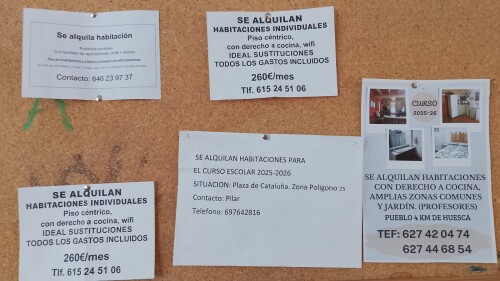 Se alquila habitación
Contacto: 646 23 97 37
SE ALQUILAN
HABITACIONES INDIVIDUALES
Piso céntrico,
con derecho a cocina, wifi
IDEAL SUSTITUCIONES
TODOS LOS GASTOS INCLUIDOS
260€/mes
Tlf. 615 24 51 06
SE ALQUILAN
HABITACIONES INDIVIDUALES
Piso céntrico,
con derecho a cocina, wifi
IDEAL SUSTITUCIONES
TODOS LOS GASTOS INCLUIDOS
260€/mes
Tlf. 615 24 51 06
SE ALQUILAN HABITACIONES PARA
EL CURSO ESCOLAR 2025-2026
SITUACION: Plaza de Cataluña. Zona Polígono 25
Contacto: Pilar
Telefono: 697642816
CURSO
2025-26
SE ALQUILAN HABITACIONES
CON DERECHO A COCINA,
AMPLIAS ZONAS COMUNES
Y JARDÍN. (PROFESORES)
PUEBLO 4 KM DE HUESCA
TEF: 627 42 04 74
627 44 68 54